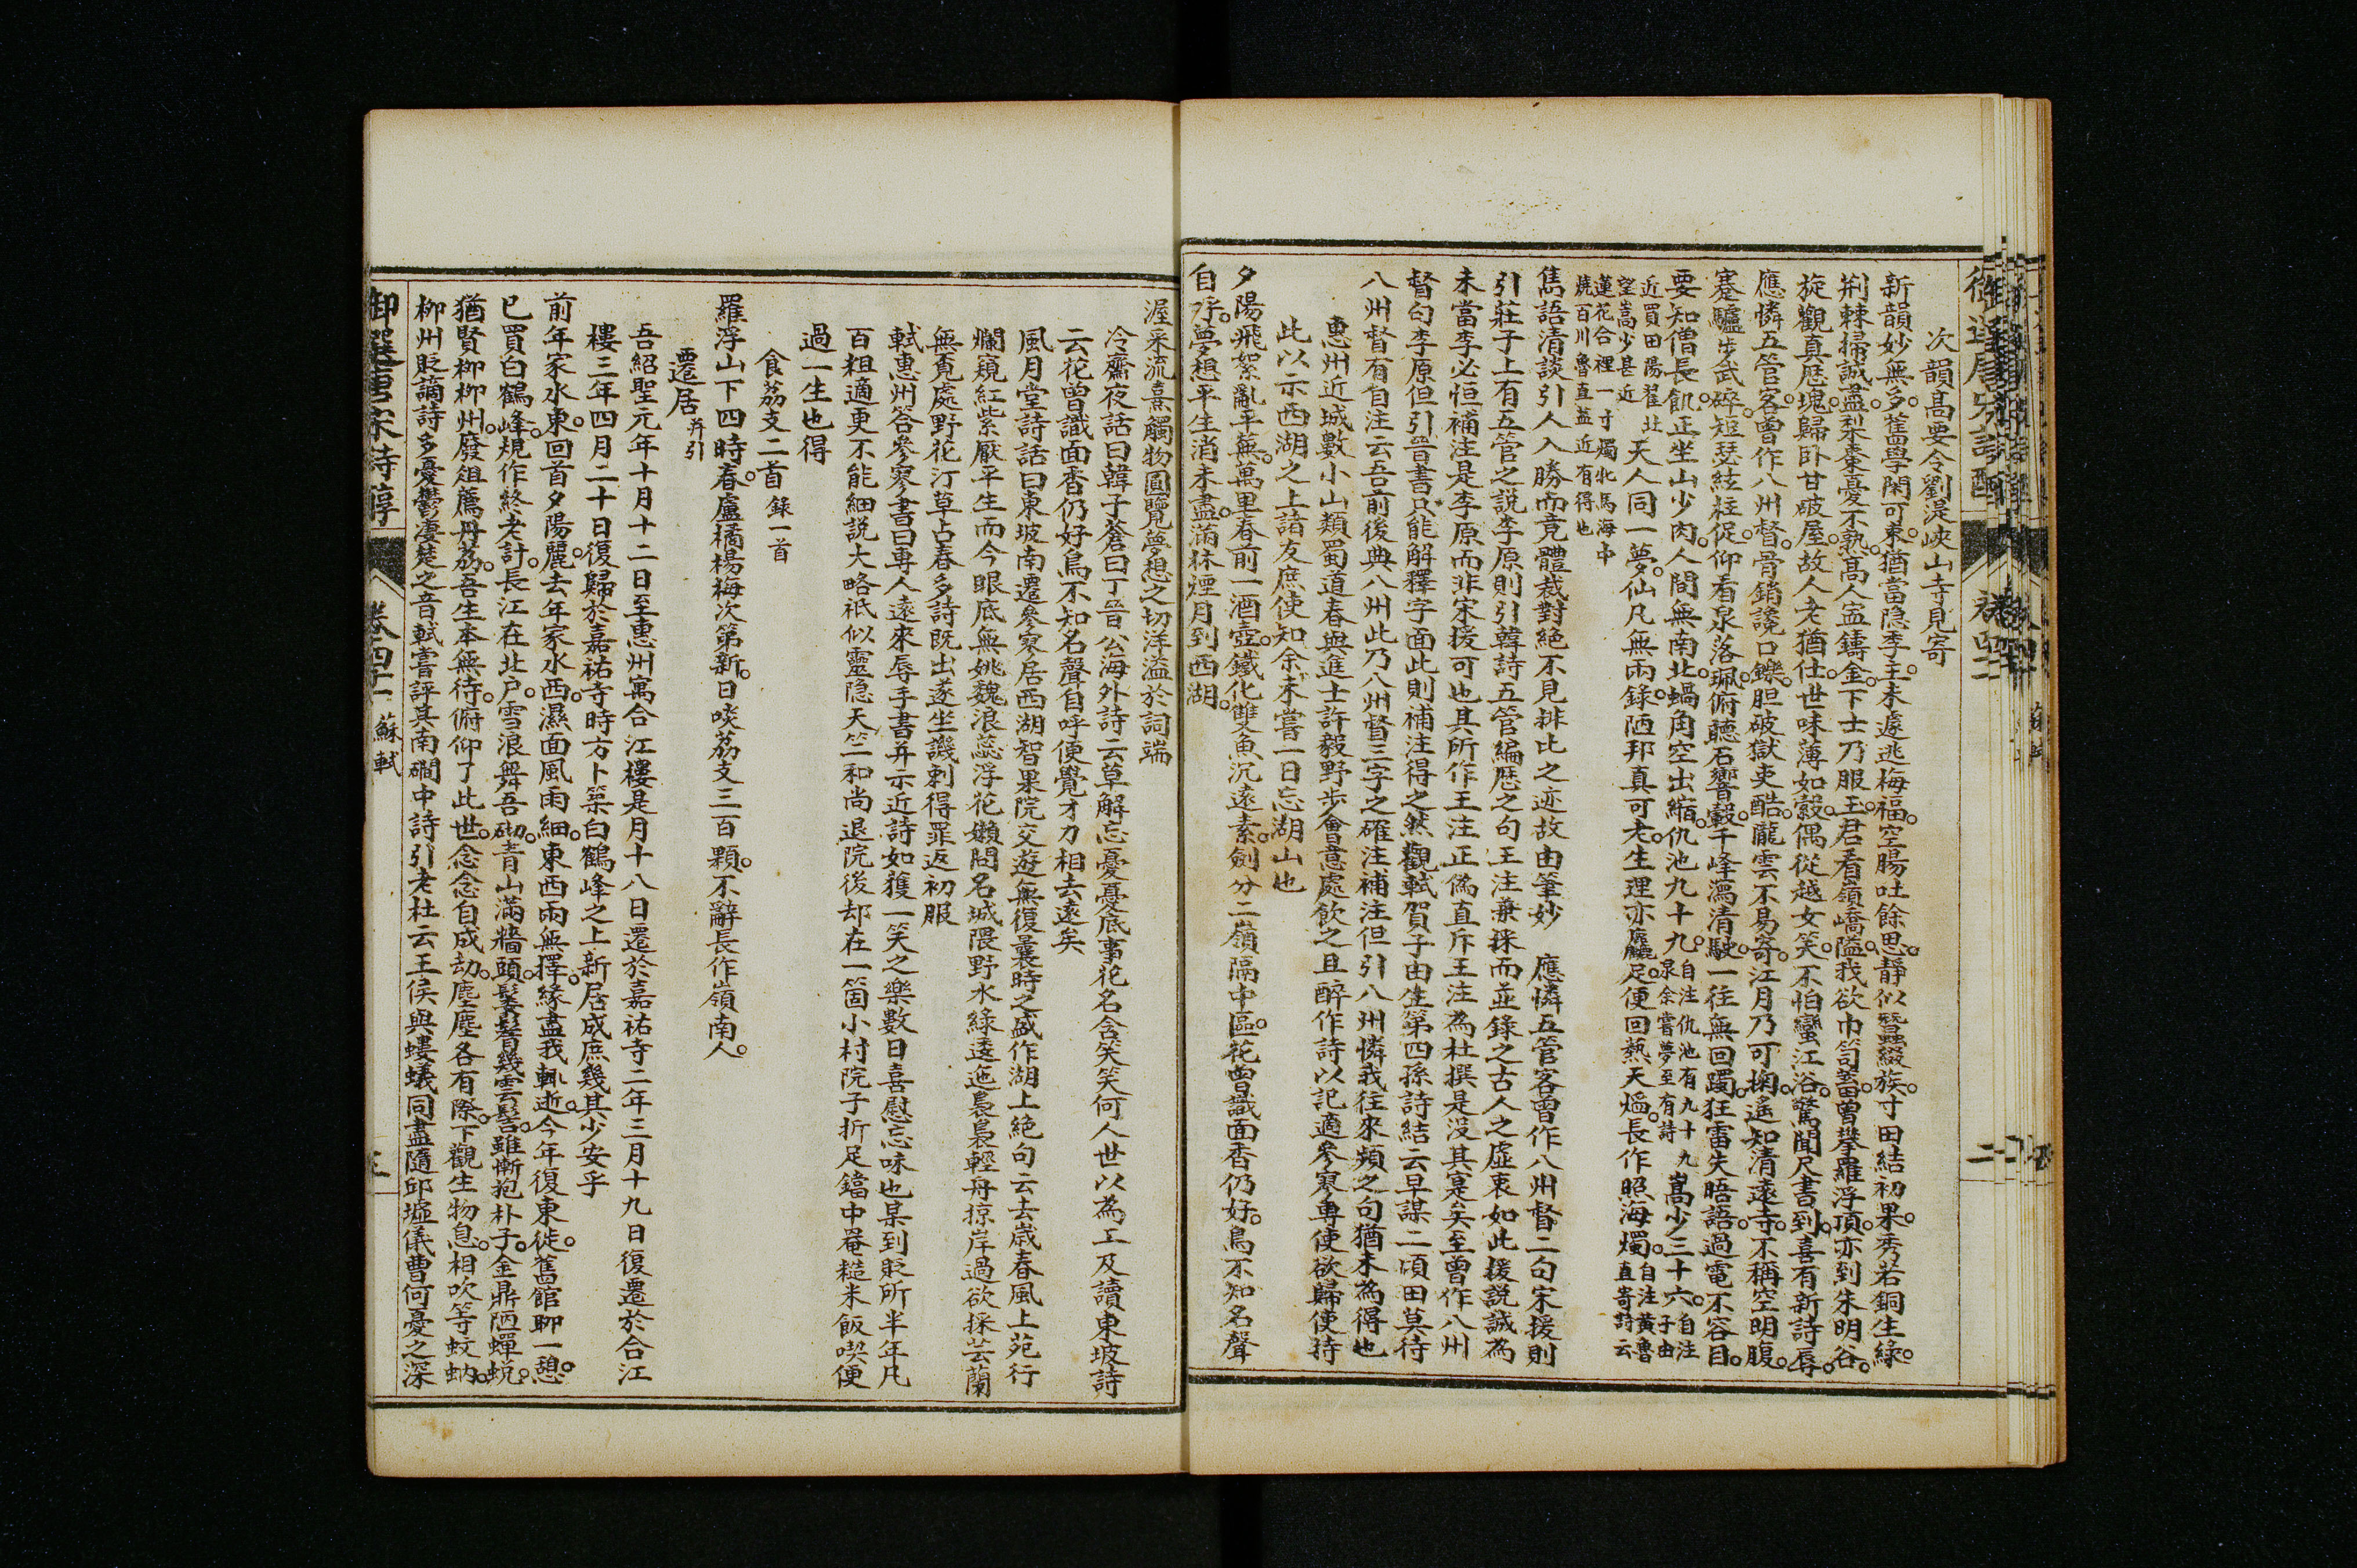 次韻高要令劉湜峽山寺見寄
新韻妙無多舊學閑可束猶當隱季主未遽逃梅福空腸吐餘思靜似蠶綴族寸田結初果秀若銅生綠
荆棘掃誠盡梨棗憂不熟高人寧鑄金下士乃服玉君看嶺嶠隘我欲巾笥蓄曾攀羅浮頂亦到朱明谷
旋觀真歷塊歸卧甘破屋故人老猶仕世味薄如縠偶從越女笑不怕蠻江浴驚聞尺書到喜有新詩辱
應憐五管客曾作八州督骨銷讒口鑠胆破獄吏酷隴雲不易寄江月乃可掬遙知清遠寺不稱空明腹
蹇驢步武碎短瑟絃柱促仰看泉落珮俯聽石響轂千峰瀉清駛一往無回躅狂雷失晤語過電不容目
要知僧長飢正坐山少肉人間無南北蝸角空出縮仇池九十九自注仇池有九十九泉余嘗夢至有詩嵩少三十六自注子由
近買田陽翟北望嵩少甚近天人同一夢仙凡無兩錄陋邦真可老生理亦麤足便回爇天燄長作照海燭自注黃魯直寄詩云
蓮花合裡一寸燭牝馬海中燒百川魯直葢近有得也
雋語清談引人入勝而竟體裁對絕不見排比之迹故由筆妙　應憐五管客曾作八州督二句宋援則
引莊子上有五管之説李原則引韓詩五管編歴之句王注兼採而並錄之古人之虛衷如此援説誠為
未當李必恒補注是李原而非宋援可也其所作王注正僞直斥王注為杜撰是没其寔矣至曾作八州
督句李原但引晉書只能解釋字面此則補注得之然觀軾賀子由生第四孫詩結云早謀二頃田莫待
八州督有自注云吾前後典八州此乃八州督三字之確注補注但引八州憐我往來頻之句猶未為得也
惠州近城數小山類蜀道春與進士許毅野步會意處飲之且醉作詩以記適參寥專使欲歸使持
此以示西湖之上諸友庶使知余未嘗一日忘湖山也
夕陽飛絮亂平蕪萬里春前一酒壺鐵化雙魚沉遠素劍分二嶺隔中區花曾識面香仍好鳥不知名聲
自呼夢想平生消未盡滿林煙月到西湖
渥采流熹觸物圓覽夢想之切洋溢於詞端
冷齋夜話曰韓子蒼曰丁晉公海外詩云草解忘憂憂底事花名含笑笑何人世以為工及讀東坡詩
云花曾識面香仍好鳥不知名聲自呼便覺才力相去遠矣
風月堂詩話曰東坡南遷參寥居西湖智果院交遊無復曩時之盛作湖上絶句云去歲春風上苑行
爛窺紅紫厭平生而今眼底無姚魏浪蕊浮花嬾問名城隈野水綠逶迤裊裊輕舟掠岸過欲採芸蘭
無覓處野花汀草占春多詩既出遂坐譏刺得罪返初服
軾惠州答參寥書曰專人遠來辱手書并示近詩如獲一笑之樂數日喜慰忘味也某到貶所半年凡
百粗適更不能細説大略祇似靈隐天竺和尚退院後却在一箇小村院子折足鐺中罨糙米飯喫便
過一生也得
食茘支二首　錄一首
羅浮山下四時春盧橘楊梅次第新日啖茘支三百顆不辭長作嶺南人
遷居并引
吾紹聖元年十月十二日至惠州寓合江樓是月十八日遷於嘉祐寺二年三月十九日復遷於合江
樓三年四月二十日復歸於嘉祐寺時方卜築白鶴峰之上新居成庶幾其少安乎
前年家水東回首夕陽麗去年家水西濕面風雨細東西兩無擇緣盡我輒逝今年復東徙舊館聊一憩
已買白鶴峰規作終老計長江在北户雪浪舞吾砌青山滿牆頭鬖髿幾雲髻雖慚抱朴子金鼎陋蟬蜕
猶賢柳柳州廢俎薦丹茘吾生本無待俯仰了此世念念自成劫塵塵各有際下觀生物息相吹等蚊蚋
柳州貶謫詩多憂鬱凄楚之音軾嘗評其南磵中詩引老杜云王侯與螻蟻同盡隨邱墟儀曹何憂之深
御選唐宋詩醇　卷四十一　蘇軾　三